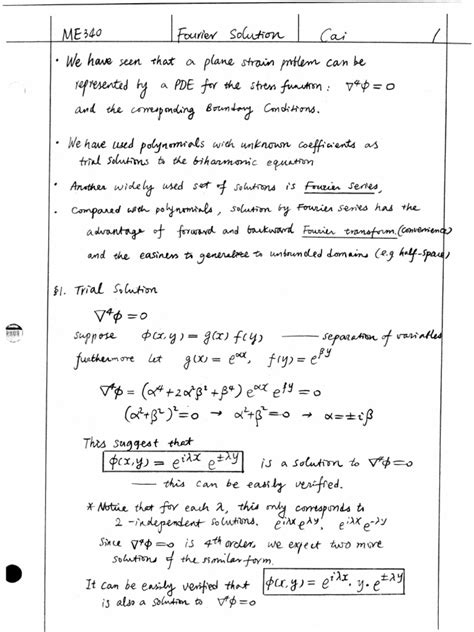 ME340 Fourier Solution Cai 1
• We have seen that a plane strain problem can be
represented by a PDE for the stress function : ∇⁴ϕ=0
and the corresponding Boundary Conditions.
• We have used polynomials with unknown coefficients as
trial solutions to the biharmonic equation
• Another widely used set of solutions is Fourier Series,
• Compared with polynomials, solution by Fourier series has the
advantage of forward and backward Fourier transform (convenience)
and the easiness to generalize to unbounded domains (e.g half-space)
§1. Trial Solution
∇⁴ϕ = 0
suppose ϕ(x,y) = g(x) f(y) — separation of variables
furthermore let g(x) = e^{αx}, f(y) = e^{βy}
∇⁴ϕ = (α⁴+2α²β²+β⁴) e^{αx} e^{βy} = 0
(α²+β²)²=0 → α²+β²=0 → α=±iβ
This suggest that
ϕ(x,y) = e^{iλx} e^{±λy} is a solution to ∇⁴ϕ=0
— this can be easily verified.
* Notice that for each λ, this only corresponds to
2-independent solutions. e^{iλx} e^{λy}, e^{iλx} e^{-λy}
Since ∇⁴ϕ=0 is 4th order, we expect two more
solutions of the similar form.
It can be easily verified that ϕ(x,y) = e^{iλx}. y. e^{±λy}
is also a solution to ∇⁴ϕ=0